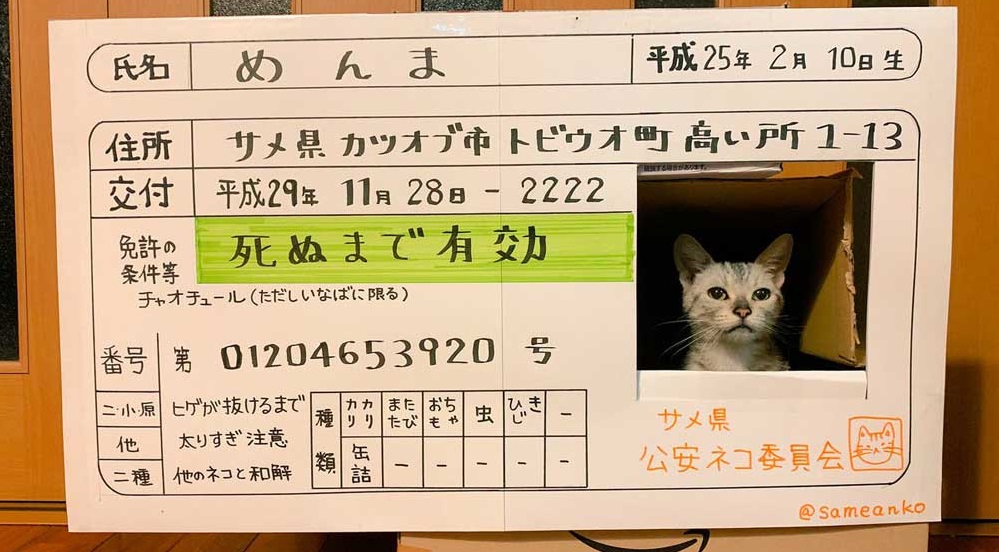 氏名 めんま 平成25年 2月 10日生
住所 サメ県 カツオブ市 トビウオ町 高い所 1-13
交付 平成29年 11月 28日 - 2222
免許の
条件等
死ぬまで有効
チャオチュール(ただしいなばに限る)
番号 第 01204653920 号
二・小・原 ヒゲが抜けるまで
他 太りすぎ注意
二種 他のネコと和解
種類
カリカリ またたび おもちゃ 虫 ひじき -
缶詰 - - - - -
サメ県
公安ネコ委員会
@sameanko